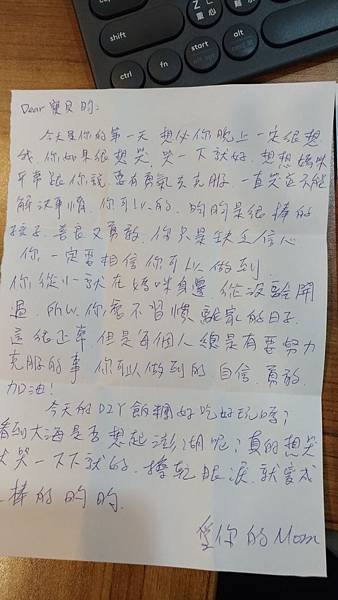 shift
ctrl
fn
start
alt
重心
Dear 寶貝昀:
今天是你的第一天 想必你晚上一定很想
我,你如果很想哭,哭一下就好,想想媽咪
平常跟你說,要有勇氣去克服,一直哭是不能
解決事情,你可以的,昀昀是很棒的
孩子,善良又勇敢,你只是缺乏信心
你一定要相信你可以做到
你從小就在媽咪身邊,從沒離開
過,所以你會不習慣離家的日子,
這很正常,但是每個人總是有要努力
克服的事 你可以做到的,自信,勇敢,
加油!
今天的DIY飯糰好吃好玩嗎?
看到大海是否想起澎湖呢?真的想哭
哭一下下就好,擦乾眼淚,就變成
棒的昀昀.
愛你的Mom